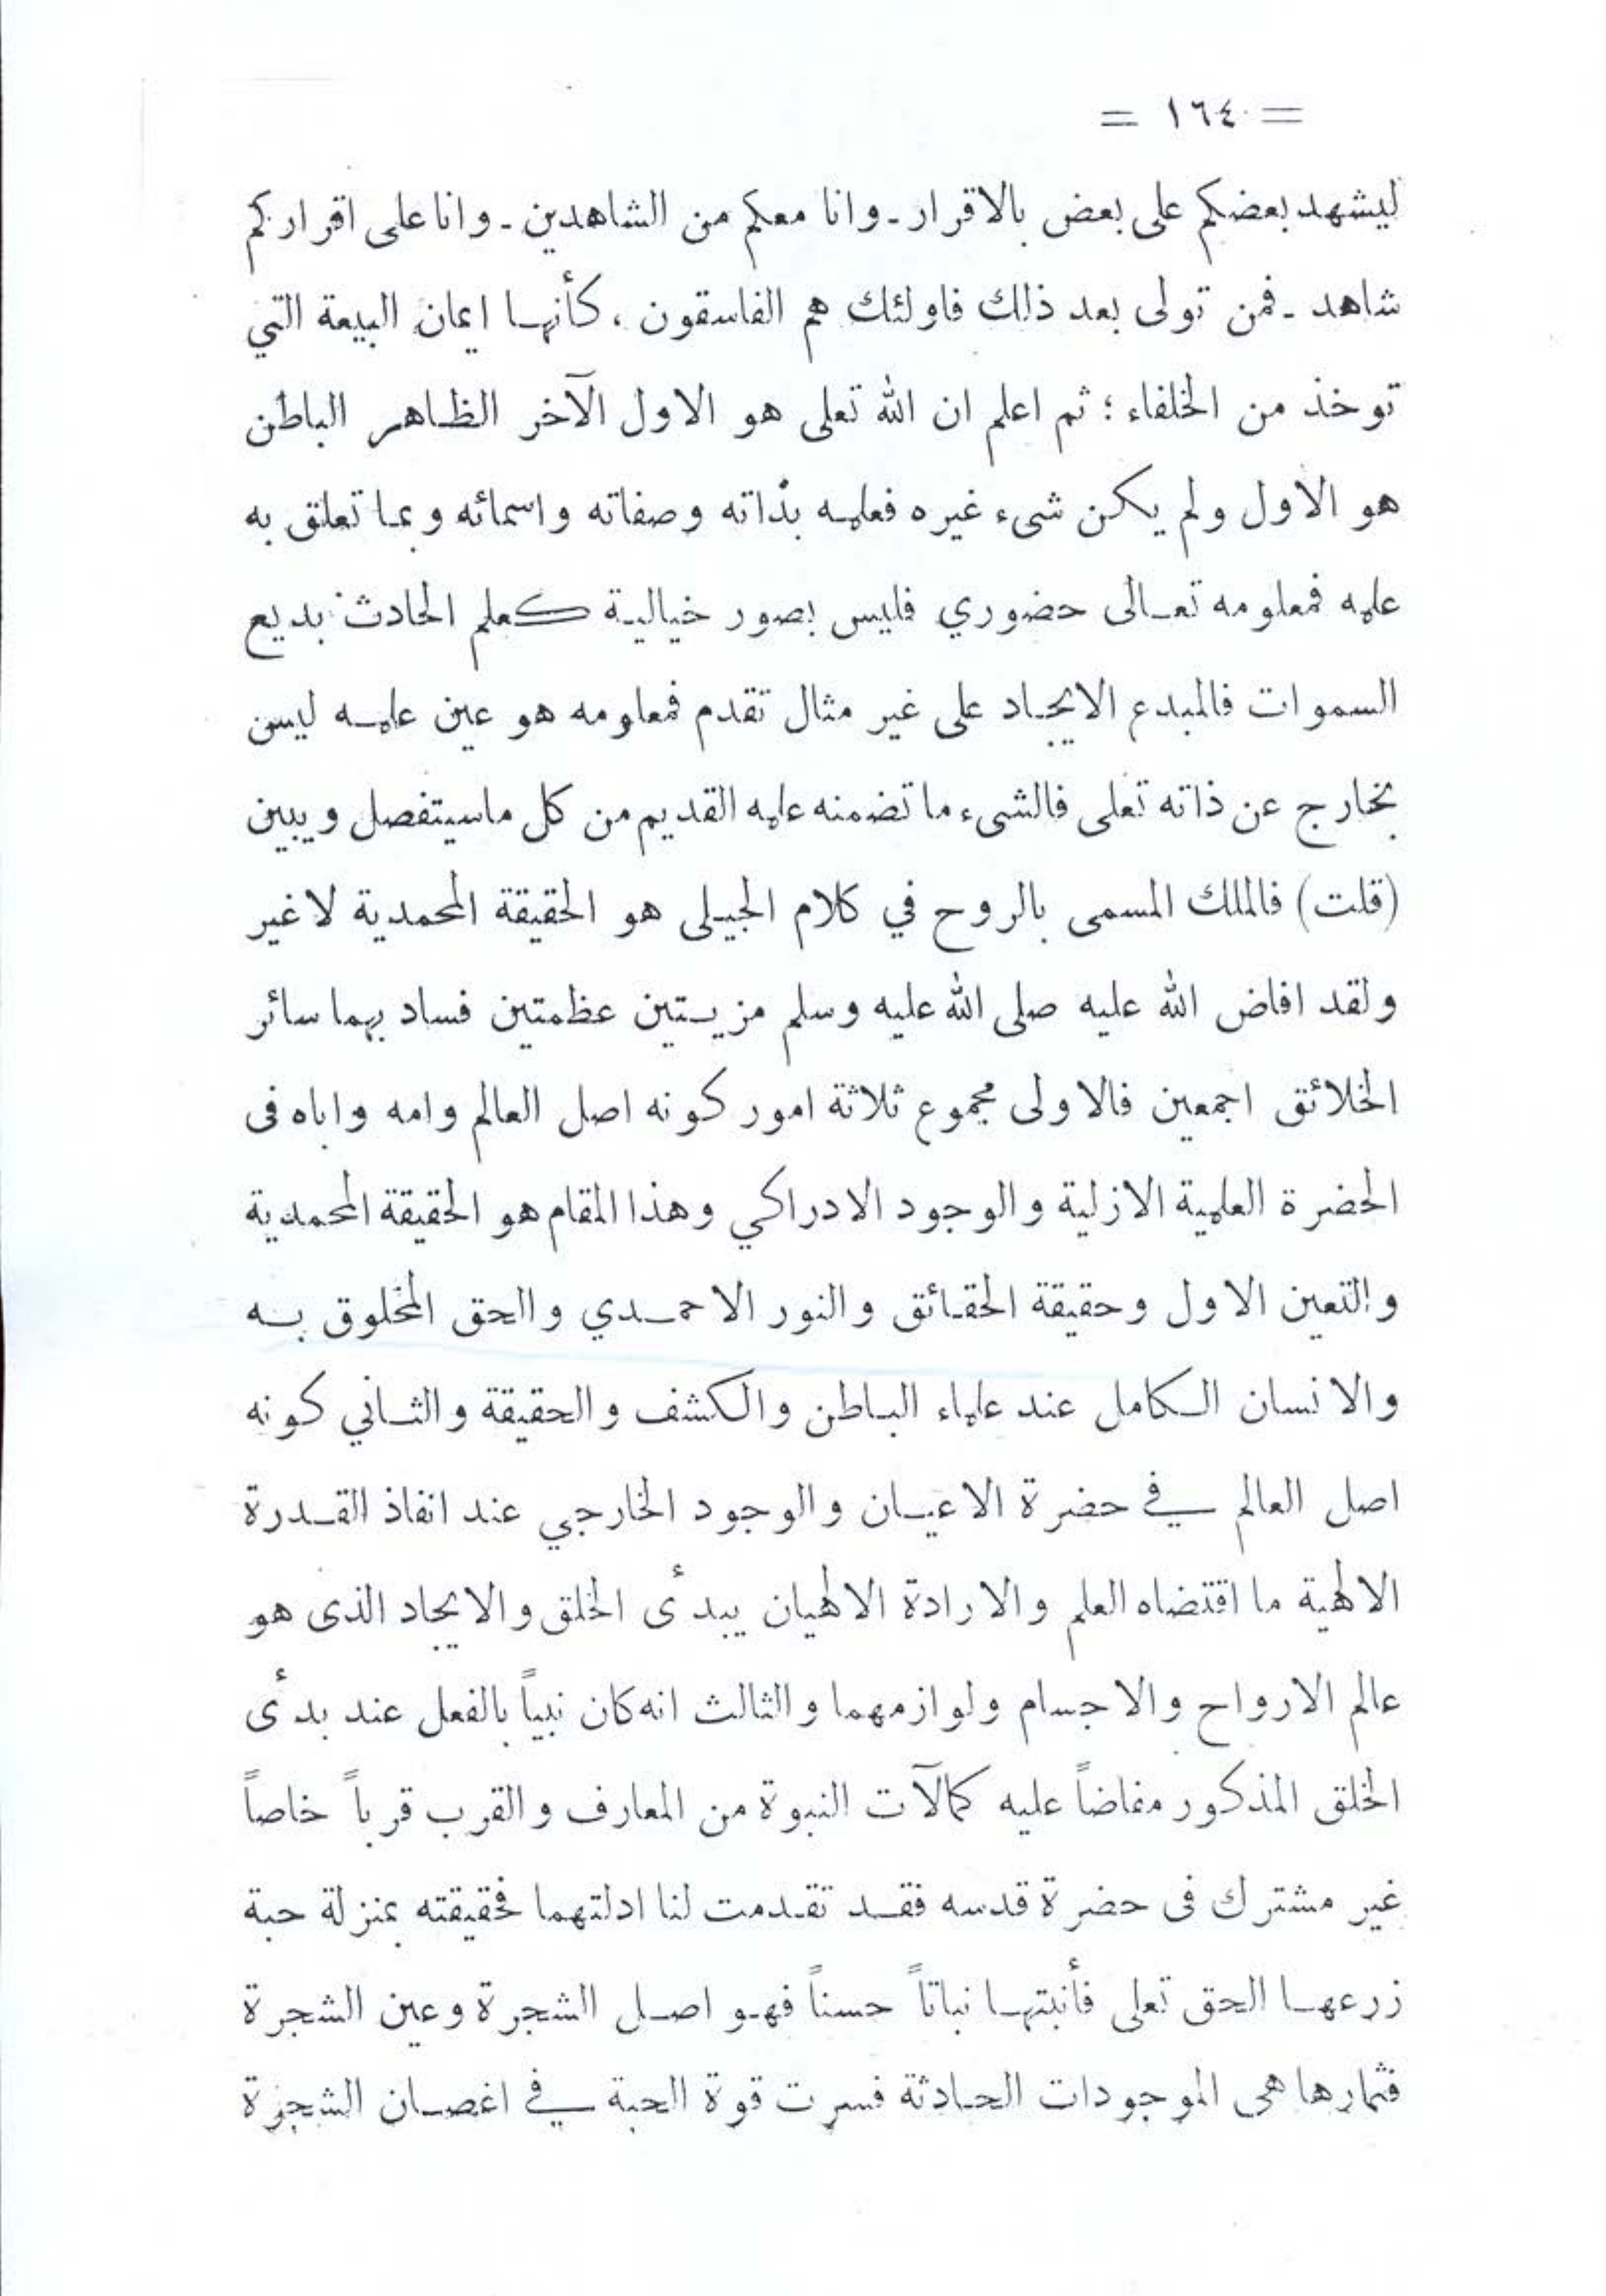 = ١٦٤ =
ليشهد بعضكم على بعض بالاقرار ـ وانا معكم من الشاهدين ـ وانا على اقراركم
شاهد ـ فمن تولى بعد ذلك فاولئك هم الفاسقون ، كأنها ايمان البيعة التي
توخذ من الخلفاء ؛ ثم اعلم ان الله تعلى هو الاول الآخر الظاهر الباطن
هو الاول ولم يكن شىء غيره فعلمه بذاته وصفاته واسمائه وبما تعلق به
علمه فمعلومه تعالى حضوري فليس بصور خيالية كعلم الحادث بديع
السموات فالمبدع الايجاد على غير مثال تقدم فمعلومه هو عين علمه ليس
بخارج عن ذاته تعلى فالشىء ما تضمنه علمه القديم من كل ماسيتفصل ويبين
(قلت) فالملك المسمى بالروح في كلام الجيلى هو الحقيقة المحمدية لا غير
ولقد افاض الله عليه صلى الله عليه وسلم مزيتين عظمتين فساد بهما سائر
الخلائق اجمعين فالاولى مجموع ثلاثة امور كونه اصل العالم وامه واباه فى
الحضرة العلمية الازلية والوجود الادراكي وهذا المقام هو الحقيقة المحمدية
والتعين الاول وحقيقة الحقائق والنور الاحمدي والحق المخلوق به
والانسان الكامل عند علماء الباطن والكشف والحقيقة والثاني كونه
اصل العالم في حضرة الاعيان والوجود الخارجي عند انفاذ القدرة
الالهية ما اقتضاه العلم والارادة الالهيان ببدأى الخلق والايجاد الذى هو
عالم الارواح والاجسام ولوازمهما والثالث انه كان نبياً بالفعل عند بدأى
الخلق المذكور مفاضاً عليه كمالآت النبوة من المعارف والقرب قرباً خاصاً
غير مشترك فى حضرة قدسه فقد تقدمت لنا ادلتهما فحقيقته بمنزلة حبة
زرعها الحق تعلى فأنبتها نباتاً حسناً فهو اصل الشجرة وعين الشجرة
فثمارها هى الموجودات الحادثة فسرت قوة الحبة في اغصان الشجرة